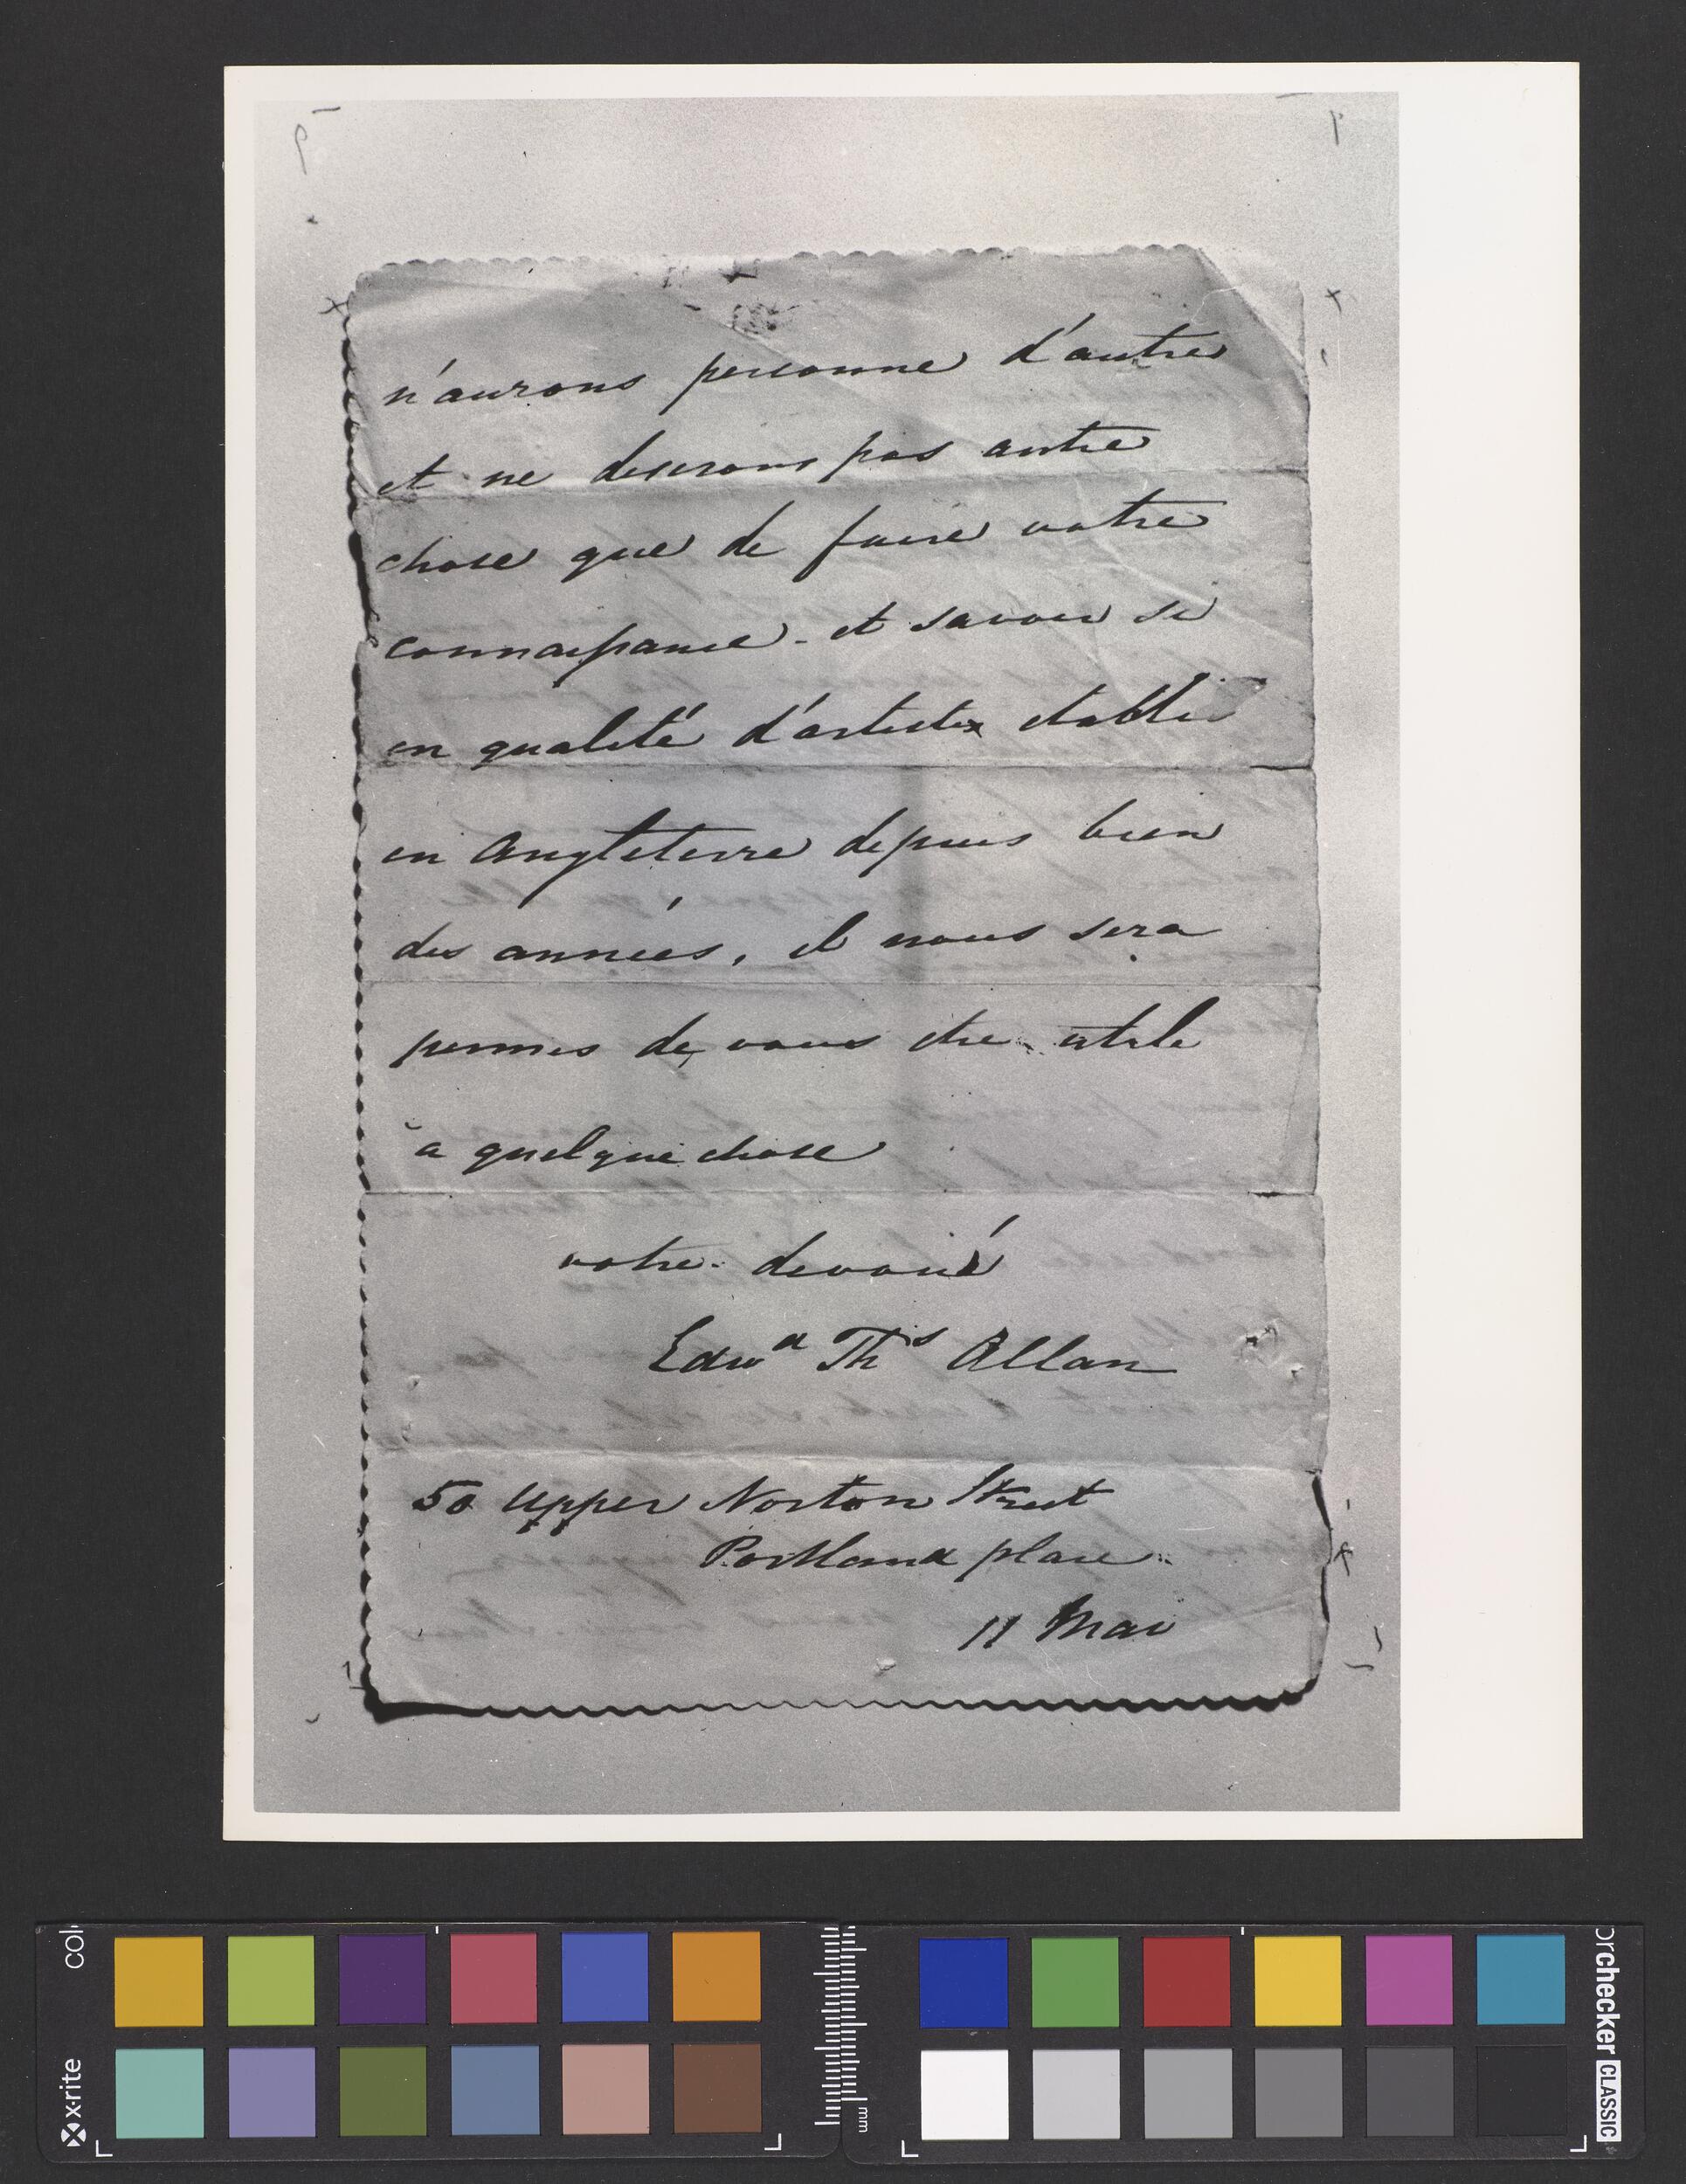 n'aurons personne d'autre
et ne desirons pas autre
chose que de faire votre
connaissance - et savoir si
en qualité d'artiste etabli
en Angleterre depuis bien
des années, il nous sera
permis de vous etre utile
à quelque chose
votre devoué
Edwd Ths Allan
50 Upper Norton Street
Portland place
11 Mai
x-rite
mm
checker CLASSIC